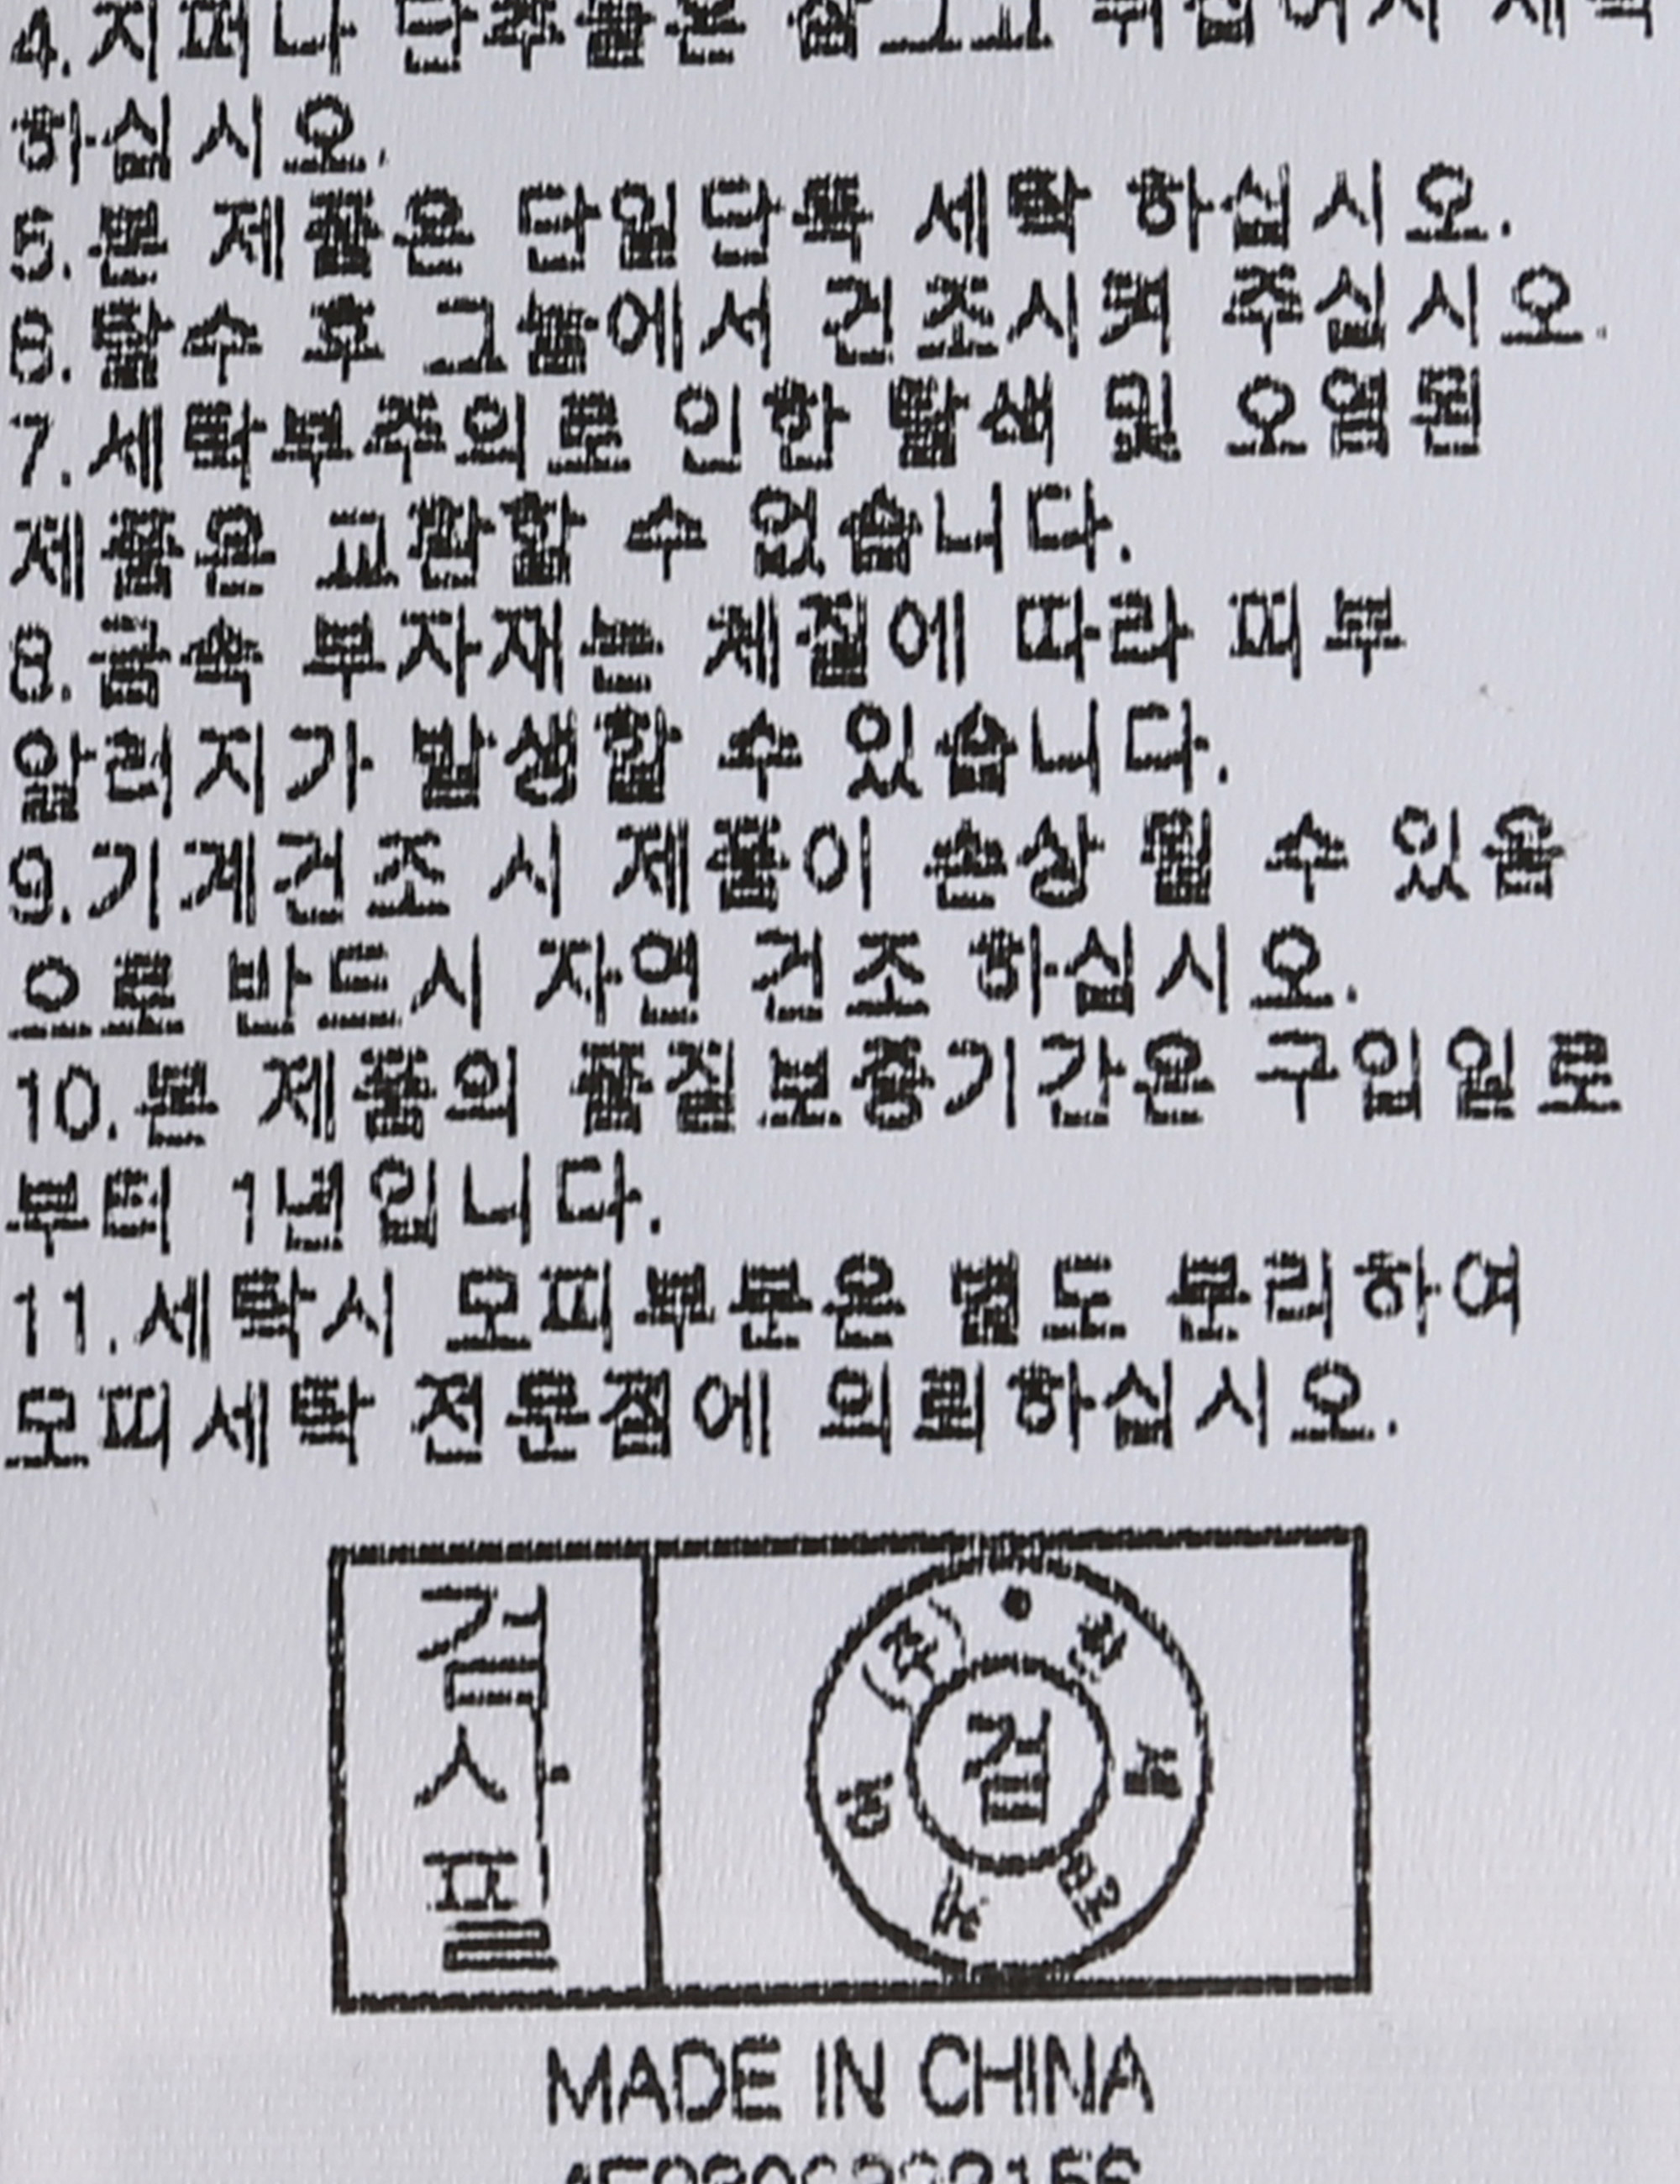 4.지퍼나 단추들은 잠그고 뒤집어서 세탁
하십시오.
5.본 제품은 단일단독 세탁 하십시오.
6.탈수 후 그늘에서 건조시켜 주십시오.
7.세탁부주의로 인한 탈색 및 오염된
제품은 교환할 수 없습니다.
8.금속 부자재는 체질에 따라 피부
알러지가 발생할 수 있습니다.
9.기계건조 시 제품이 손상 될 수 있음
으로 반드시 자연 건조 하십시오.
10.본 제품의 품질보증기간은 구입일로
부터 1년입니다.
11.세탁시 모피부분은 별도 분리하여
모피세탁 전문점에 의뢰하십시오.
검사필
검
MADE IN CHINA